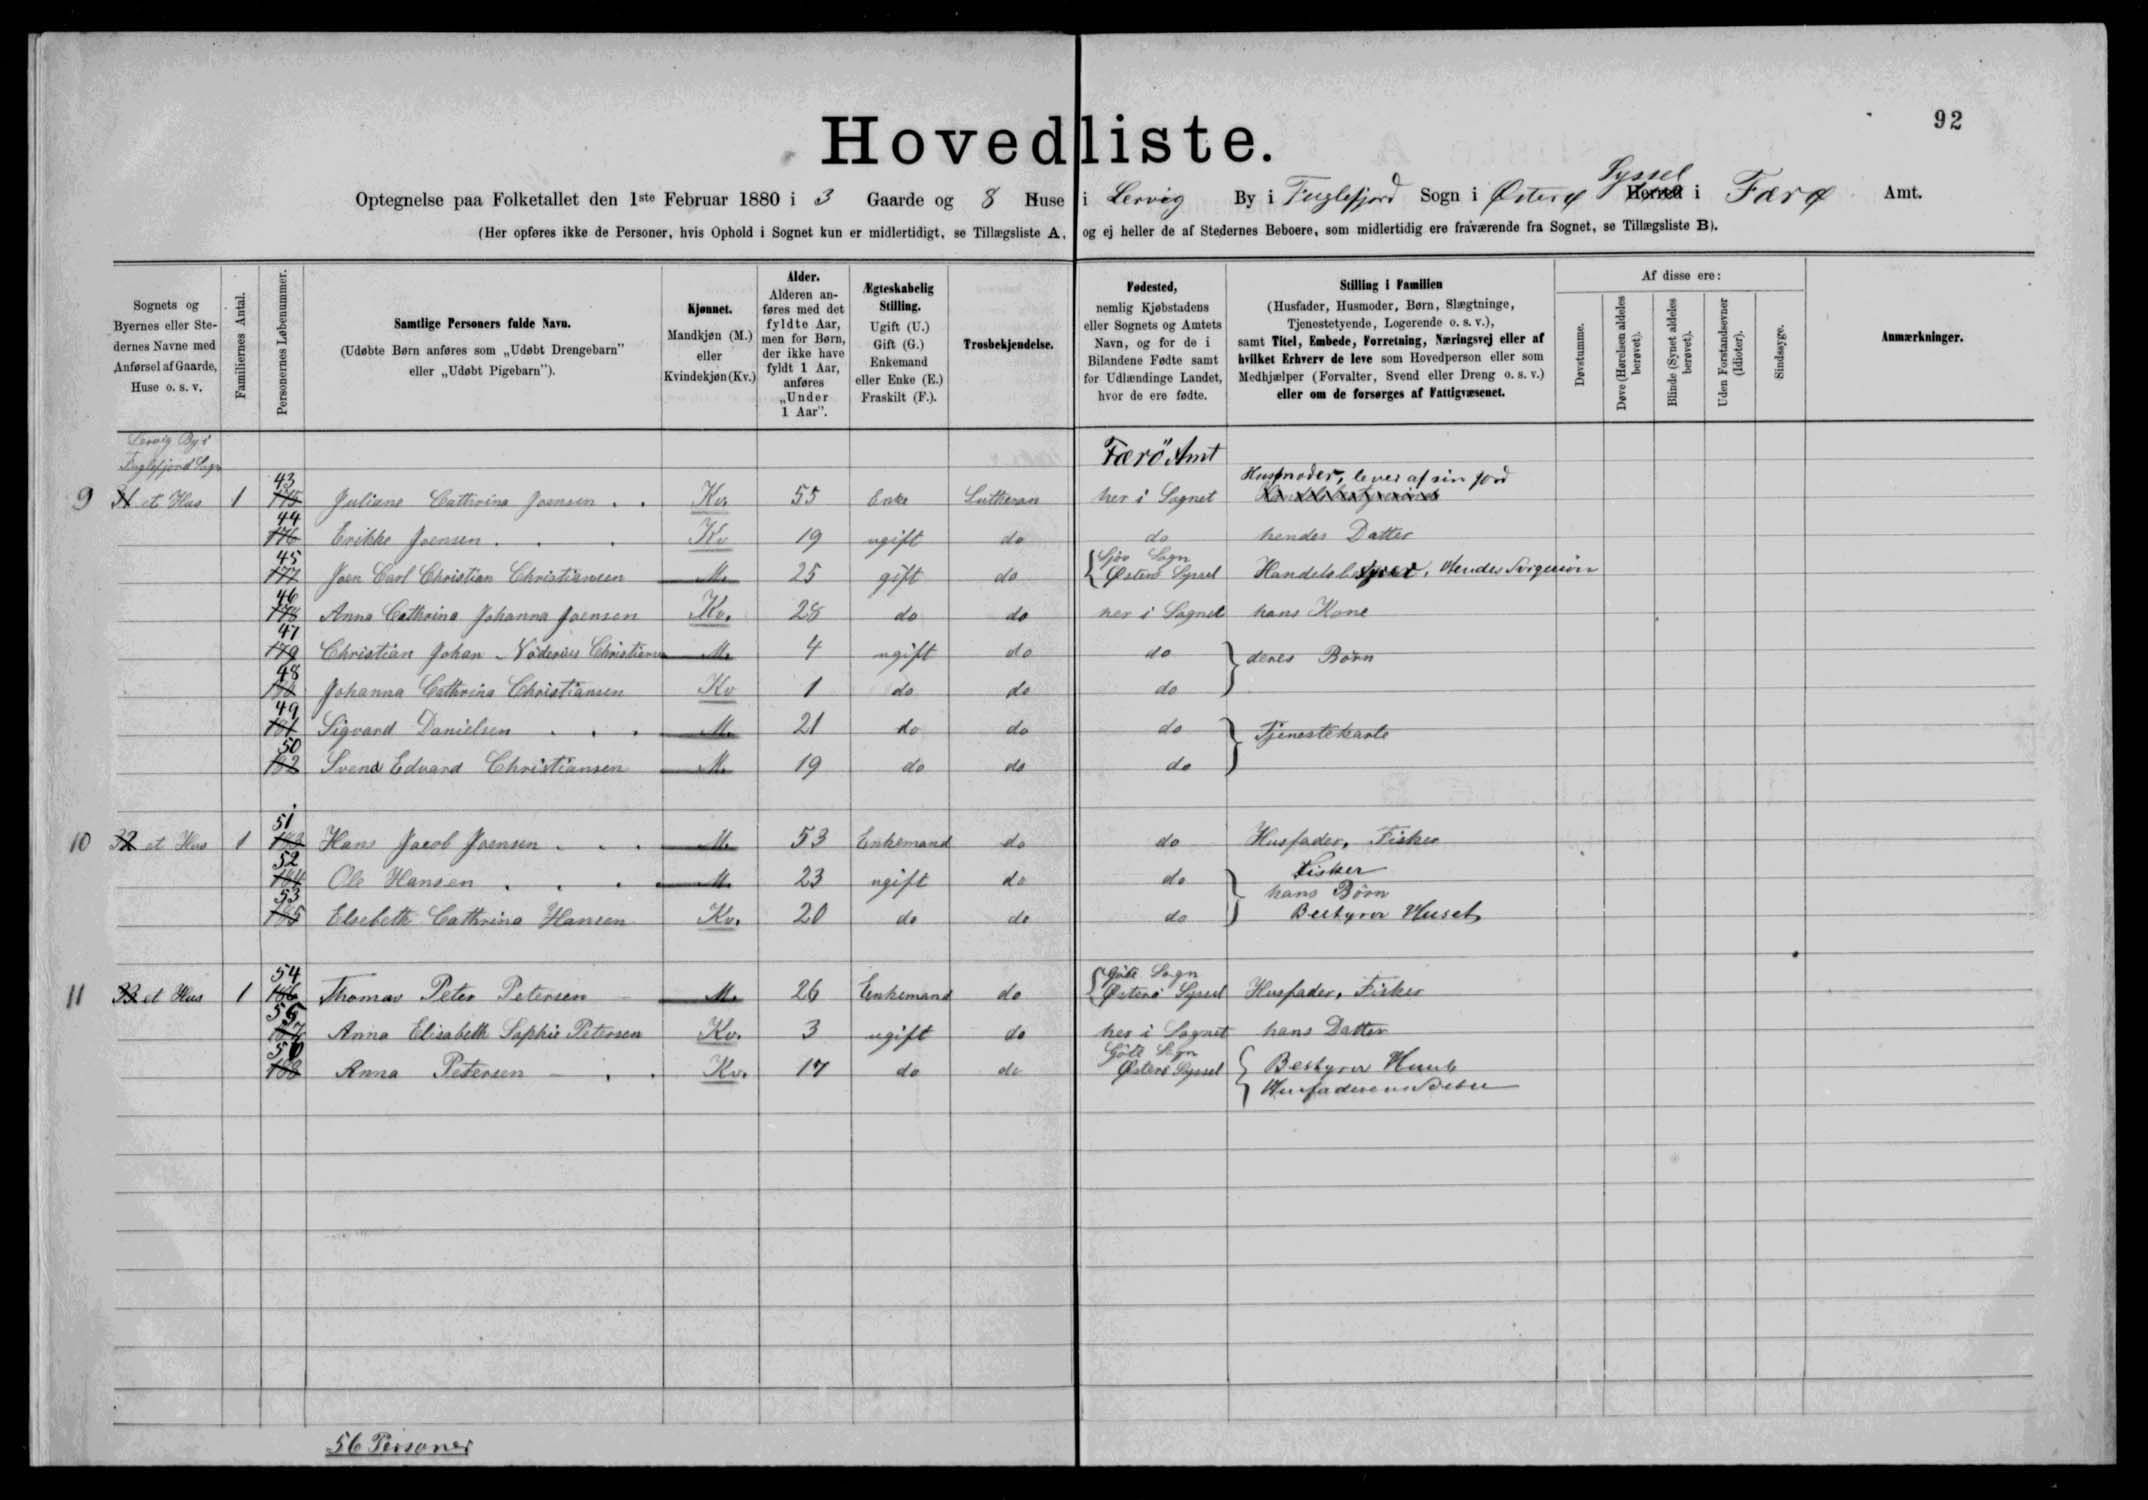 92
Hovedliste.
Optegnelse paa Folketallet den 1ste Februar 1880 i 3 Gaarde og 8 Huse i Lervig By i Fuglefjord Sogn i Østerø Syssel Herred i Færø Amt.
(Her opføres ikke de Personer, hvis Ophold i Sognet kun er midlertidigt, se Tillægsliste A, og ej heller de af Stedernes Beboere, som midlertidig ere fraværende fra Sognet, se Tillægsliste B).
Sognets og Byernes eller Stedernes Navne med Anførsel af Gaarde, Huse o. s. v.
Familiernes Antal.
Personernes Løbenummer.
Samtlige Personers fulde Navn.
(Udøbte Børn anføres som „Udøbt Drengebarn" eller „Udøbt Pigebarn").
Kjønnet.
Mandkjøn (M.) eller Kvindekjøn (Kv.)
Alder.
Alderen anføres med det fyldte Aar, men for Børn, der ikke have fyldt 1 Aar, anføres „Under 1 Aar".
Ægteskabelig Stilling.
Ugift (U.) Gift (G.) Enkemand eller Enke (E.) Fraskilt (F.).
Trosbekjendelse.
Fødested,
nemlig Kjøbstadens eller Sognets og Amtets Navn, og for de i Bilandene Fødte samt for Udlændinge Landet, hvor de ere fødte.
Stilling i Familien
(Husfader, Husmoder, Børn, Slægtninge, Tjenestetyende, Logerende o. s. v.), samt Titel, Embede, Forretning, Næringsvej eller af hvilket Erhverv de leve som Hovedperson eller som Medhjælper (Forvalter, Svend eller Dreng o. s. v.) eller om de forsørges af Fattigvæsenet.
Af disse ere:
Døvstumme.
Døve (Hørelsen aldeles berøvet).
Blinde (Synet aldeles berøvet).
Uden Forstandsevner (Idioter).
Sindssyge.
Anmærkninger.
Lervig By i
Fuglefjord Sogn
Færö Amt
9 31 et Hus 1 43 175 Juliane Cathrina Joensen Kv. 55 Enke Lutheran her i Sognet Husmoder, lever af sin Jord
44 176 Erikke Joensen Kv 19 ugift do do hendes Datter
45 177 Joen Carl Christian Christiansen M. 25 gift do { Sjöv Sogn Østerö Syssel Handelsbestyrer, Hendes Svigersön
46 178 Anna Cathrina Johanna Joensen Kv. 28 do do her i Sognet hans Kone
47 179 Christian Johan Christiansen M. 4 ugift do do } deres Börn
48 180 Johanna Cathrina Christiansen Kv 1 do do do
49 181 Sigvard Danielsen M. 21 do do do } Tjenestekarle
50 182 Svend Edvard Christiansen M. 19 do do do
10 32 et Hus 1 51 183 Hans Jacob Joensen M. 53 Enkemand do do Husfader, Fisker
52 184 Ole Hansen M. 23 ugift do do } Fisker
hans Börn
53 185 Elsebeth Cathrina Hansen Kv. 20 do do do Bestyrer Huset
11 33 et Hus 1 54 186 Thomas Peter Petersen M. 26 Enkemand do { Göte Sogn Østerö Syssel Husfader, Fisker
55 187 Anna Elisabeth Sophie Petersen Kv. 3 ugift do her i Sognet hans Datter
56 188 Anna Petersen Kv. 17 do do Göte Sogn Østerö Syssel { Bestyrer Huset
Husfaderens Söster
56 Personer